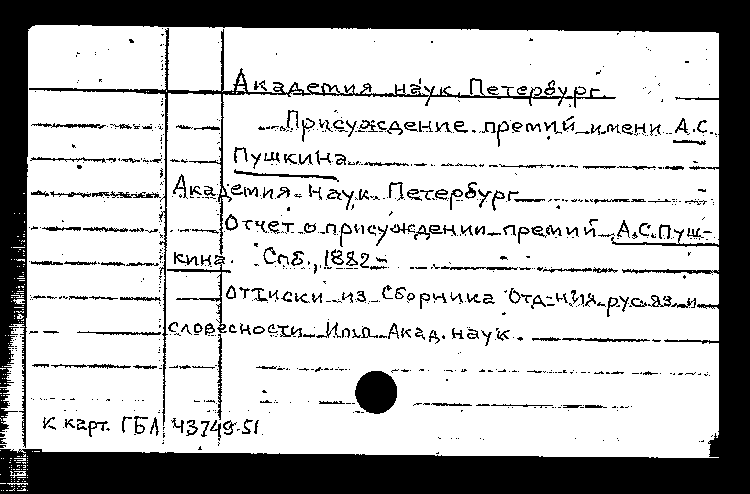 Академия наук. Петербург.
Присуждение премий имени А.С.
Пушкина
Академия наук. Петербург
Отчет о присуждении премий А.С.Пуш-
кина. Спб., 1882-
Оттиски из Сборника Отд-ния рус.яз. и
словесности Имп. Акад. наук.
К карт. ГБЛ 43749-51